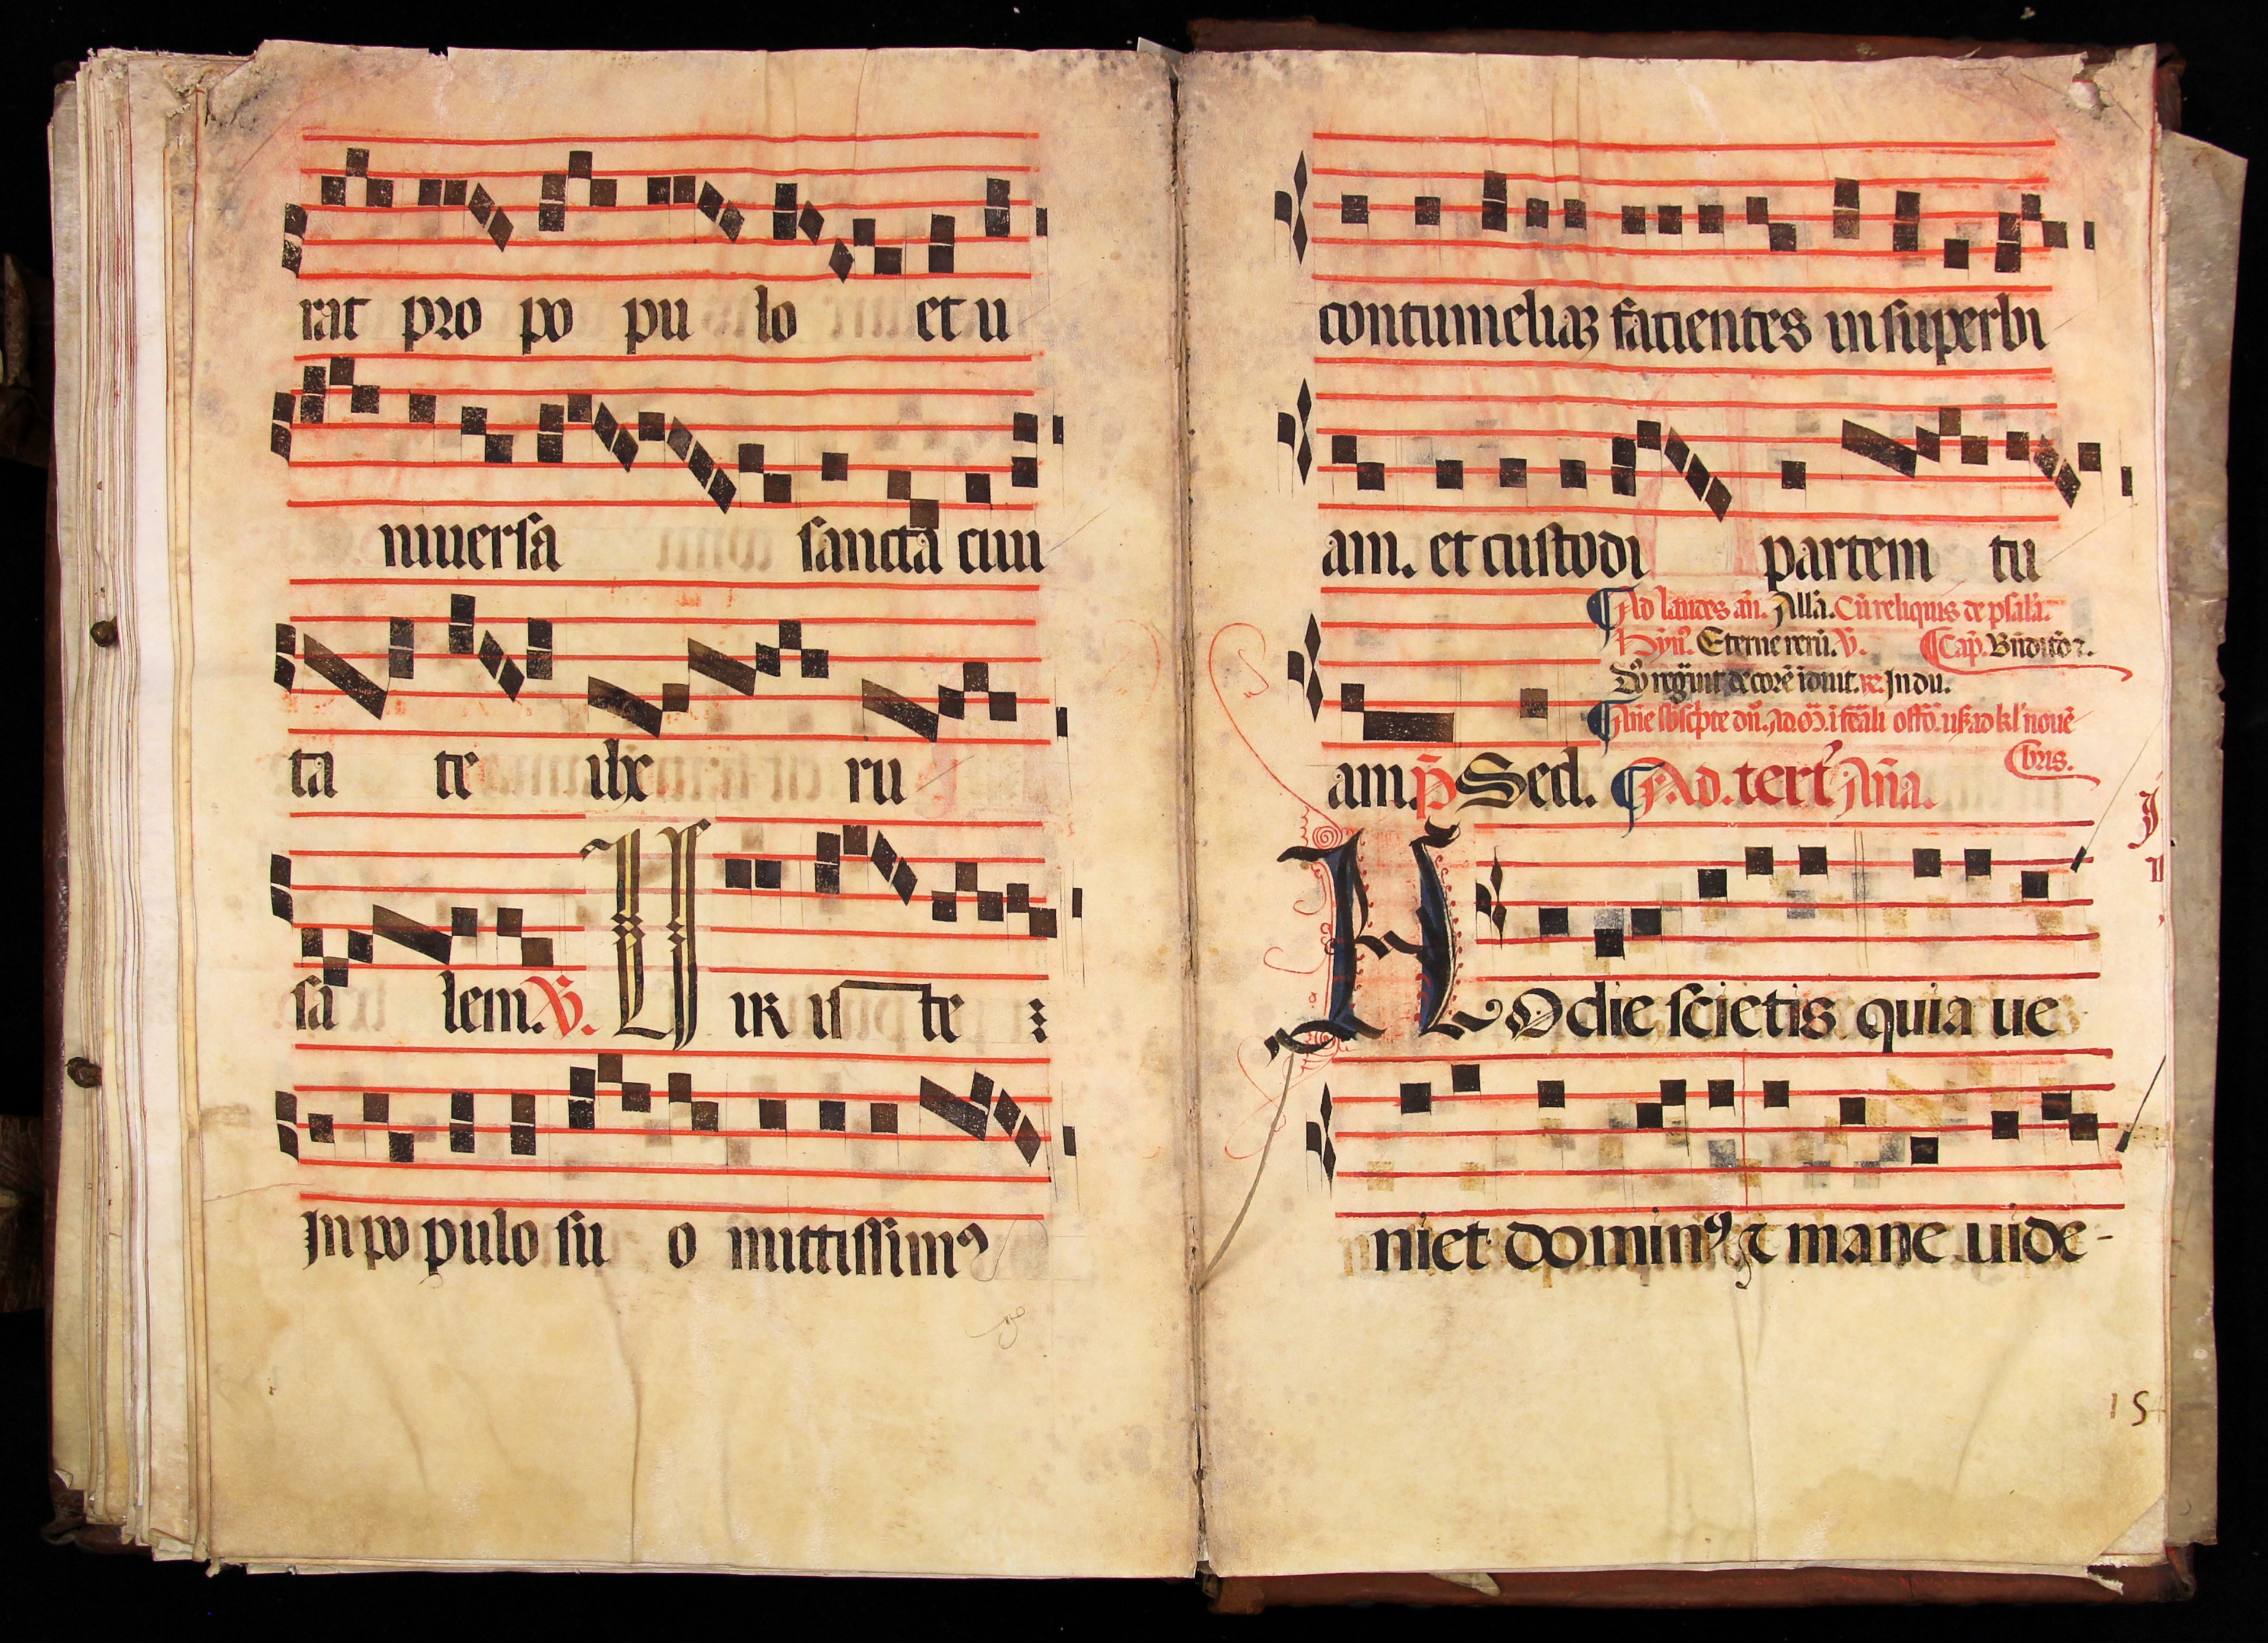 rat pro po pu lo et u
niuersa sancta ciui
ta te ihe ru
sa lem. V. Uir iste
In po pulo su o mittissimꝰ
contumeliaꝫ facientes in superbi
am. et custodi partem tu
Ad laudes añ. Allã. Cũ reliquis de psalã.
Hỹnꝰ. Eterne rerũ. V. Cap̃. Bñdictõ ⁊.
Dõ regũit decorẽ iduit. ꝶ. In du.
bris.
am. p̃ Sed. Ad. tert' Añа.
Hodie scietis quia ue
niet dominꝰ ⁊ mane uide-
15